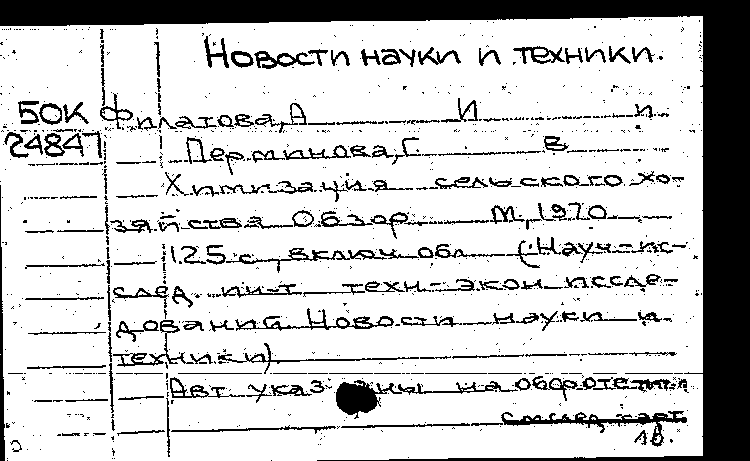 Новости науки и техники.
БОК Филатова, А И и
24847 Перминова, Г. В
Химизация сельского хо-
зяйства Обзор. М, 1970
125 с, включ обл (Науч-ис-
след. ин-т техн-экон иссле-
дований Новости науки и
техники)
Авт указ на обороте тит л
18.